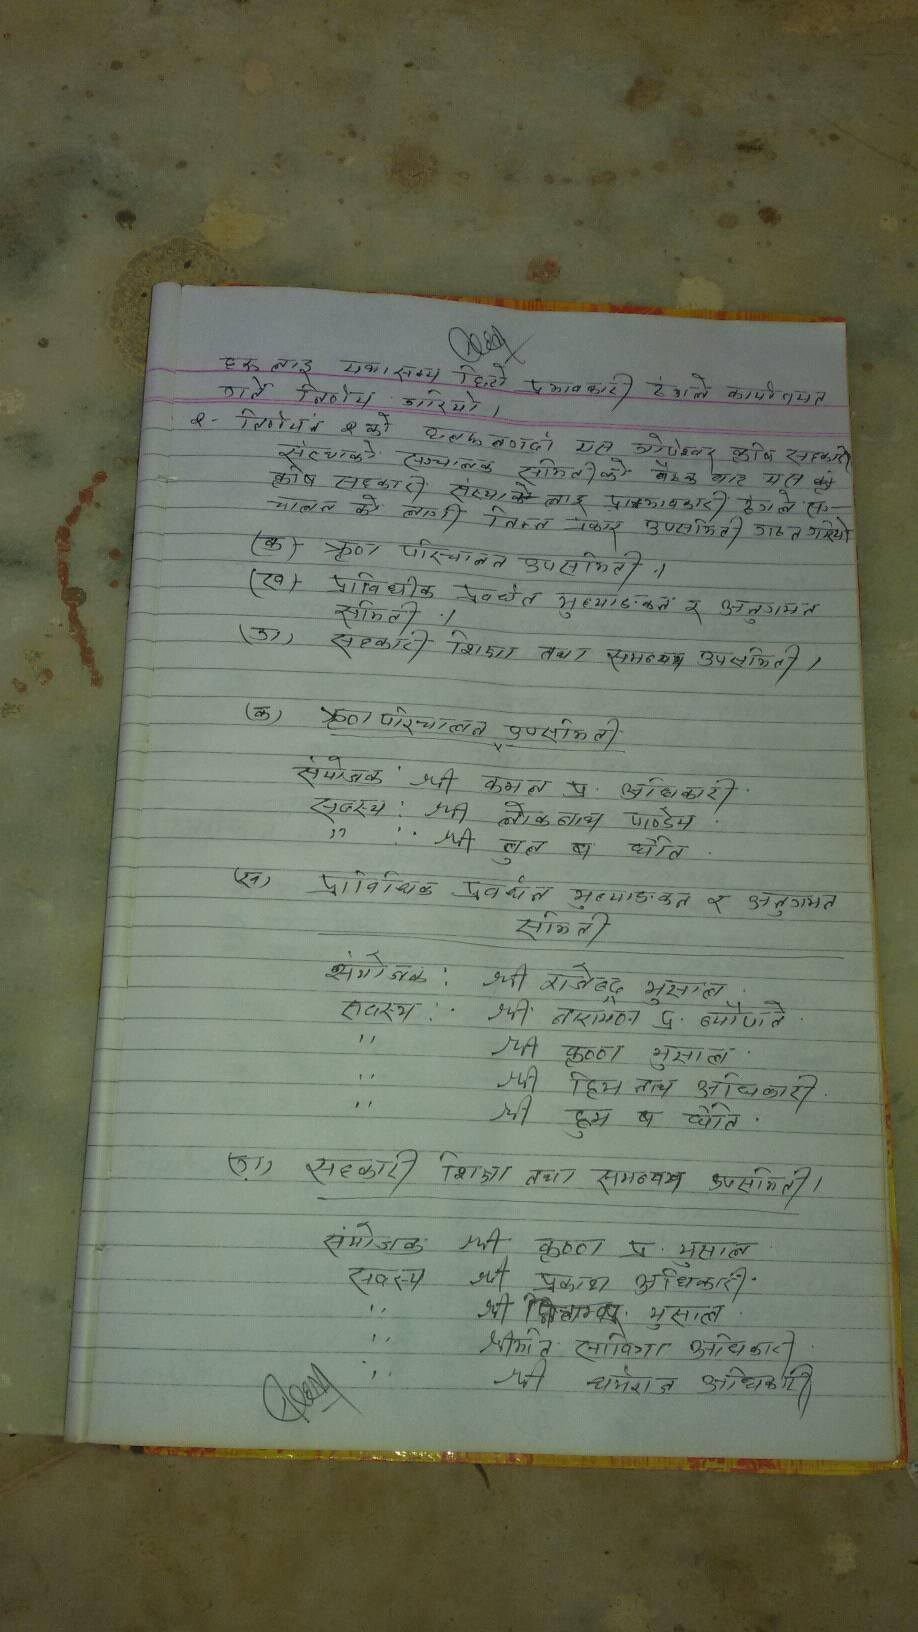 हरू लाइ यथासक्य छिटो प्रभावकारी ढंगले कार्यान्वयन
गर्ने निर्णय गरियो ।
२- निर्णय नं २ को छलफल गर्दा यस गोपेश्वर कृषि सहकारी
संस्थाको सञ्चालक समितीको बैठक बाट यस
कृषि सहकारी संस्था लाइ प्रभावकारी ढंगले स-
ञ्चालन को लागी निम्न प्रकार उपसमिती गठन गरियो
(क) ऋण परिचालन उपसमिती ।
(ख) प्राविधीक प्रवर्धन मुल्याङकन र अनुगमन
समिती ।
(ग) सहकारी शिक्षा तथा समन्वय उपसमिती ।
(क) ऋण परिचालन उपसमिती
संयोजक : श्री कमल प्र. अधिकारी .
सदस्य : श्री लोकनाथ पाण्डेय .
,, : श्री बुल ब घर्ति .
(ख) प्राविधिक प्रवर्धन मुल्याङकन र अनुगमन
समिती
संयोजक : श्री राजेन्द्र भुसाल .
सदस्य : श्री नारायण प्र. न्यौपाने .
,, श्री कृष्ण भुसाल .
,, श्री हिम नाथ अधिकारी .
,, श्री हुम ब घर्ति .
(ग) सहकारी शिक्षा तथा समन्वय उपसमिती ।
संयोजक श्री कृष्ण प्र. भुसाल
सदस्य श्री प्रकाश अधिकारी .
,, श्री भुसाल .
,, श्रीमति सावित्रा अधिकारी
,, श्री धर्मराज अधिकारी